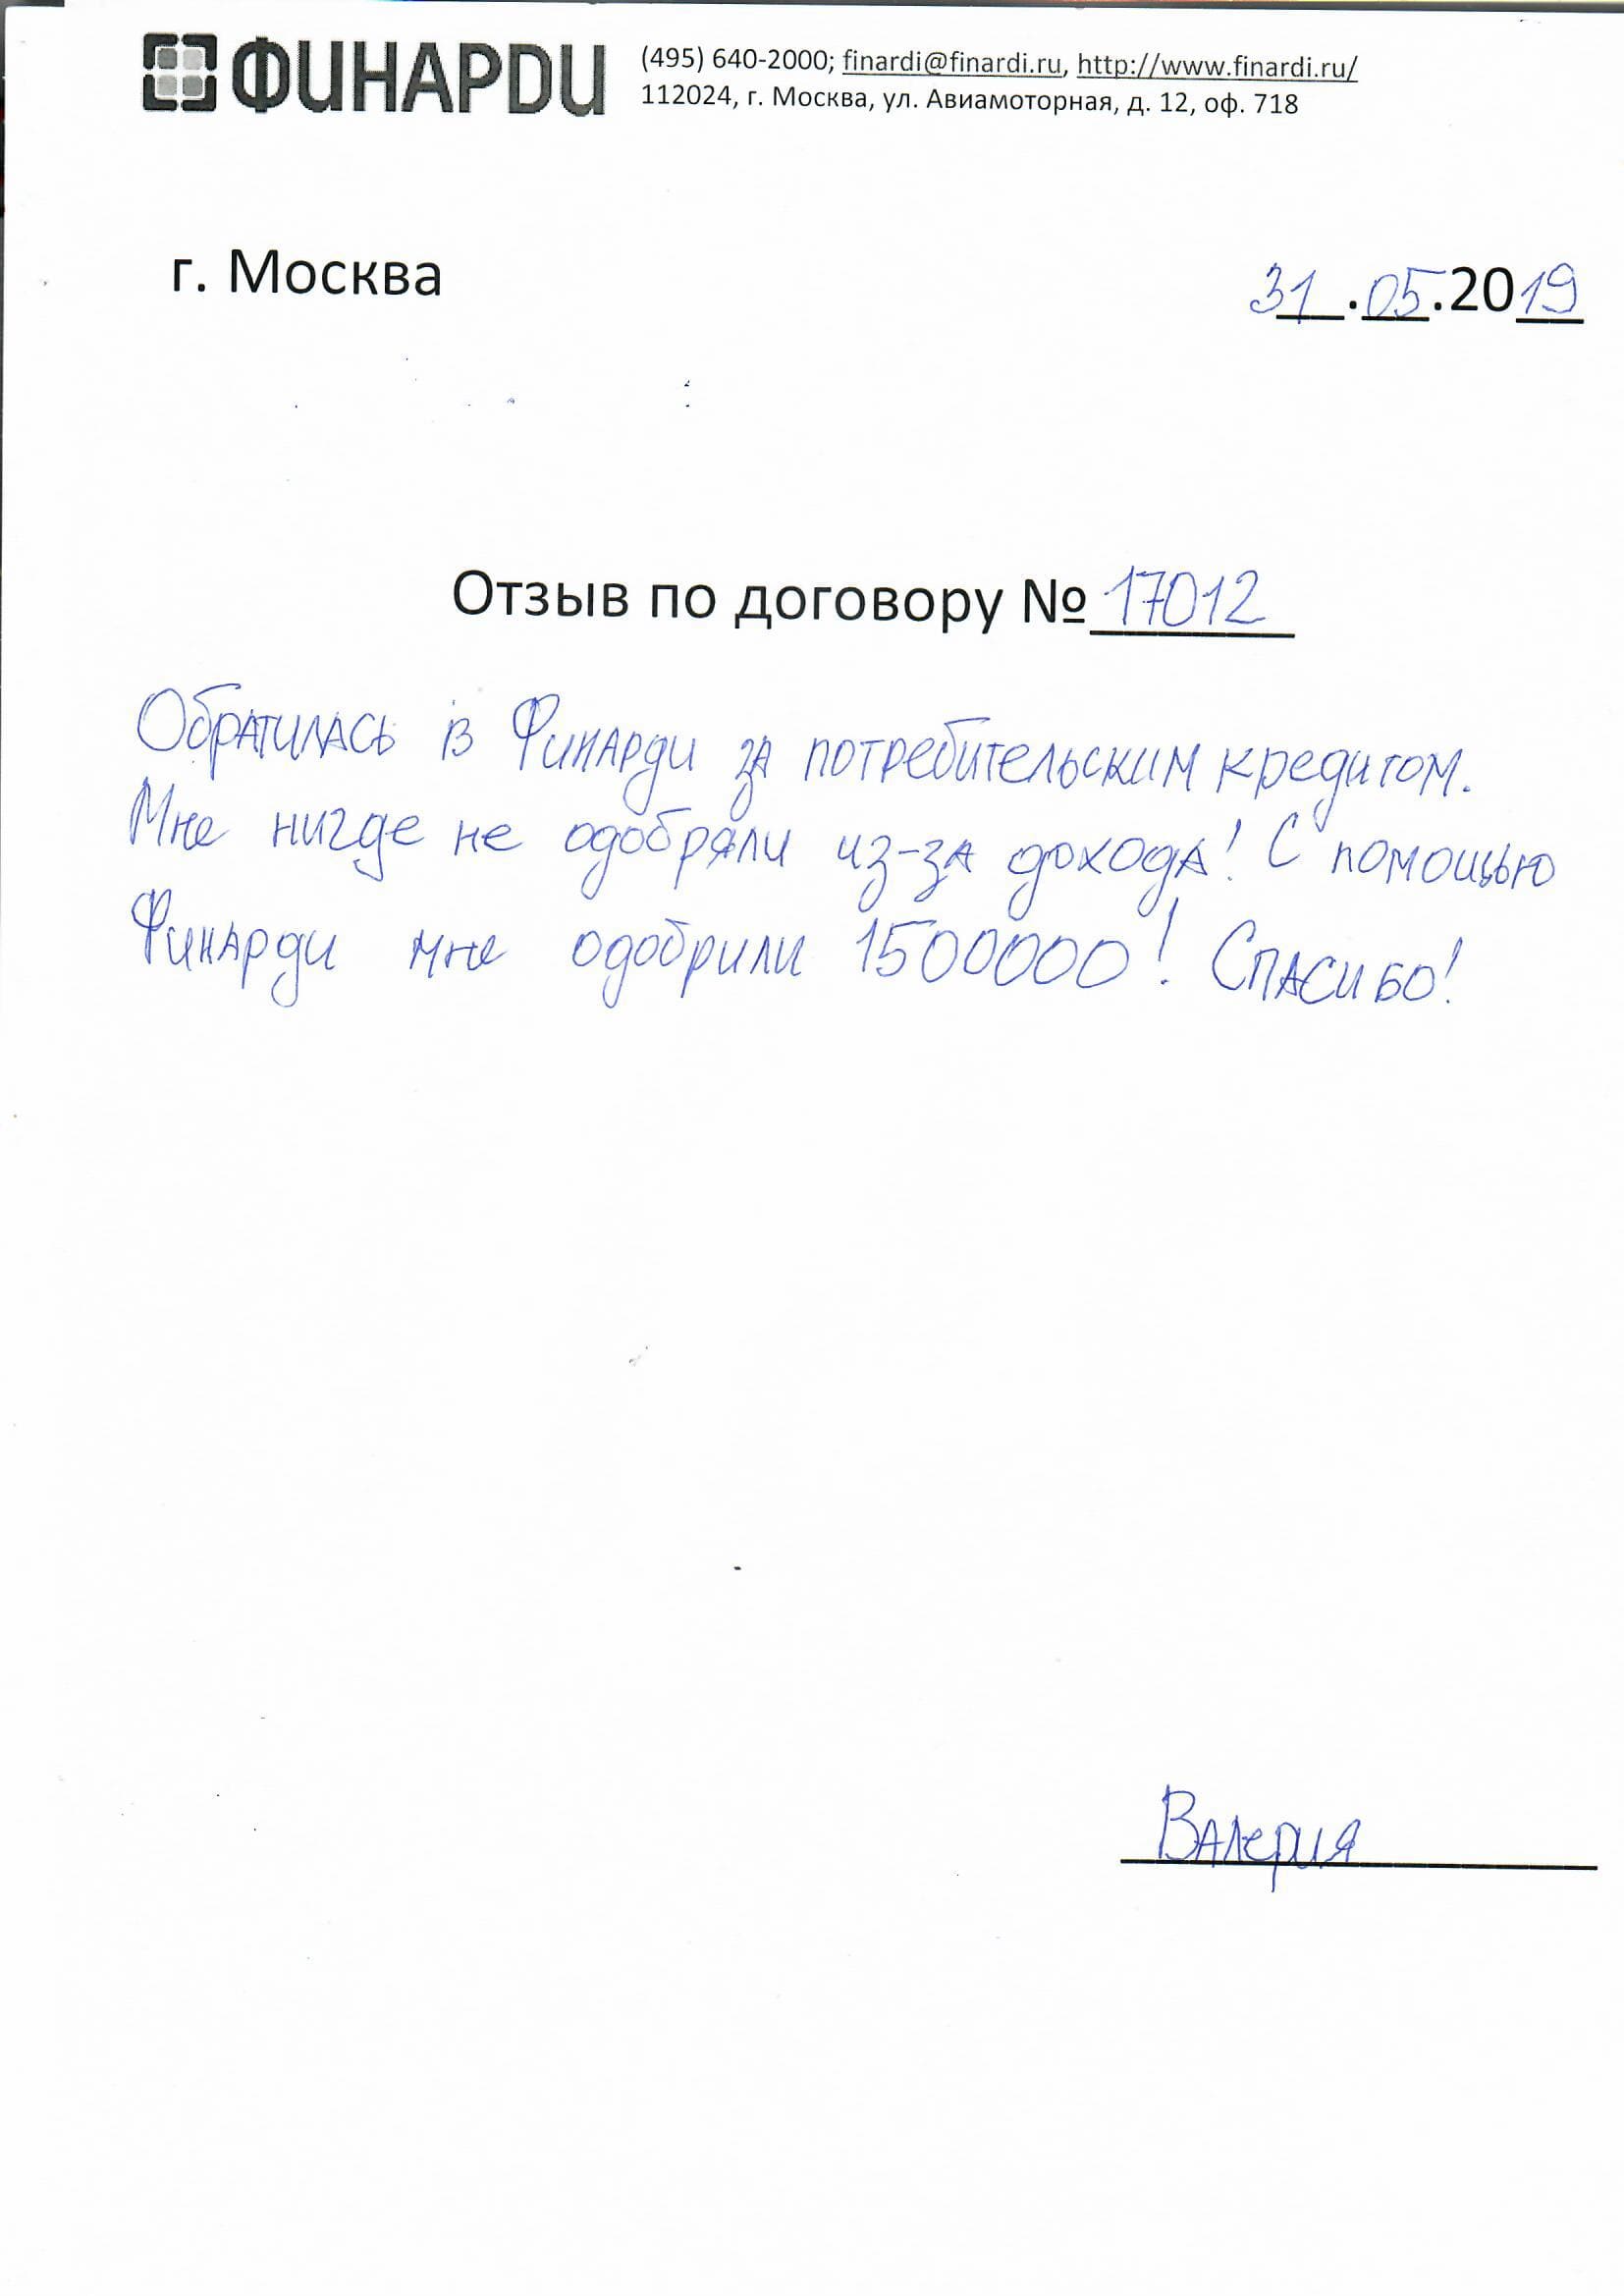 ФИНАРДИ
(495) 640-2000; finardi@finardi.ru, http://www.finardi.ru/
112024, г. Москва, ул. Авиамоторная, д. 12, оф. 718
г. Москва 31.05.2019
Отзыв по договору № 17012
Обратилась в Финарди за потребительским кредитом.
Мне нигде не одобряли из-за дохода! С помощью
Финарди мне одобрили 1500000! Спасибо!
Валерия